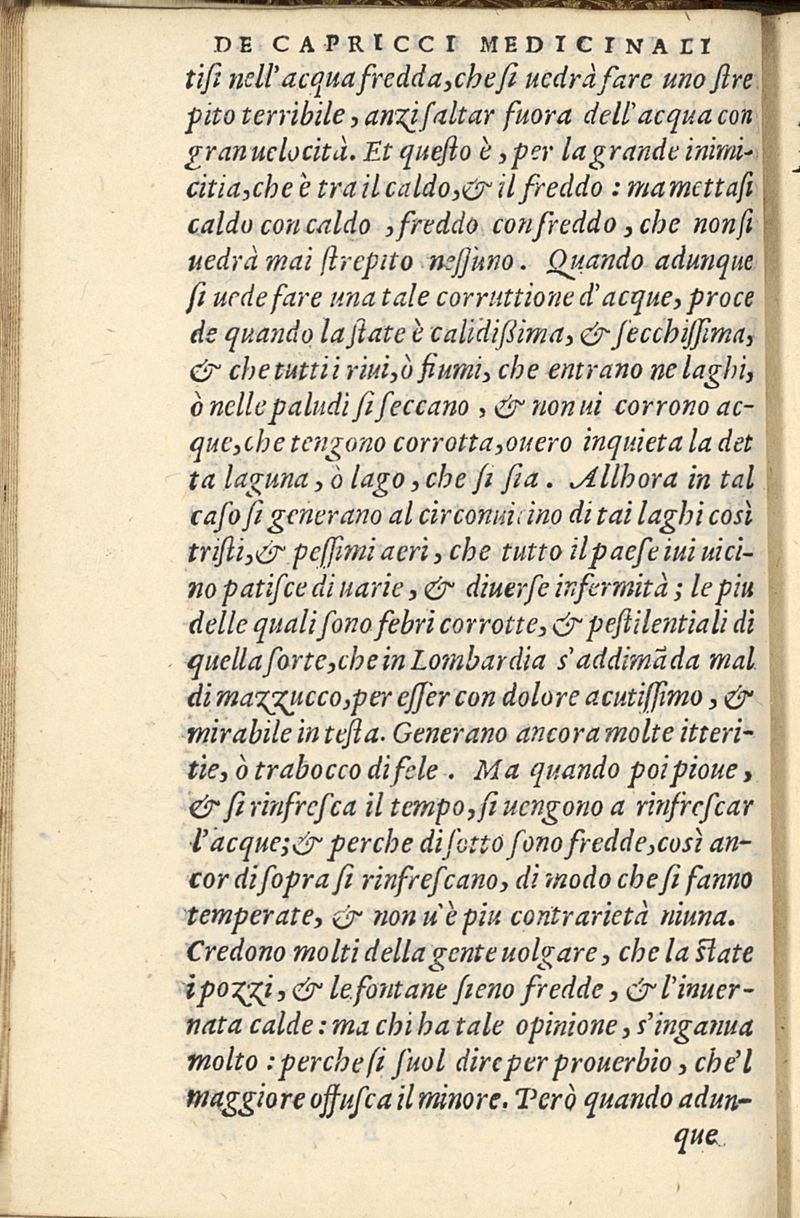 DE CAPRICCI MEDICINALI
tiſi nell'acqua fredda, che ſi uedrà fare uno ſtre
pito terribile, anzi ſaltar fuora dell'acqua con
gran uelocità. Et queſto è, per la grande inimi-
citia, che è tra il caldo, & il freddo: ma mettaſi
caldo con caldo, freddo con freddo, che non ſi
uedrà mai ſtrepito neſſuno. Quando adunque
ſi uede fare una tale corruttione d'acque, proce
de quando la ſtate è calidißima, & ſecchiſſima,
& che tutti i riui, ò fiumi, che entrano ne laghi,
ò nelle paludi ſi ſeccano, & non ui corrono ac-
que, che tengono corrotta, ouero inquieta la det
ta laguna, ò lago, che ſi ſia. Allhora in tal
caſo ſi generano al circonuicino di tai laghi così
triſti, & peſſimi aeri, che tutto il paeſe iui uici-
no patiſce di uarie, & diuerſe infermità; le piu
delle quali ſono febri corrotte, & peſtilentiali di
quella ſorte, che in Lombardia s'addimāda mal
di mazzucco, per eſſer con dolore acutiſſimo, &
mirabile in teſta. Generano ancora molte itteri-
tie, ò trabocco di fele. Ma quando poi pioue,
& ſi rinfreſca il tempo, ſi uengono a rinfreſcar
l'acque; & perche di ſotto ſono fredde, così an-
cor di ſopra ſi rinfreſcano, di modo che ſi fanno
temperate, & non u'è piu contrarietà niuna.
Credono molti della gente uolgare, che la ſtate
i pozzi, & le fontane ſieno fredde, & l'inuer-
nata calde: ma chi ha tale opinione, s'inganua
molto: perche ſi ſuol dire per prouerbio, che'l
maggiore offuſca il minore. Però quando adun-
que